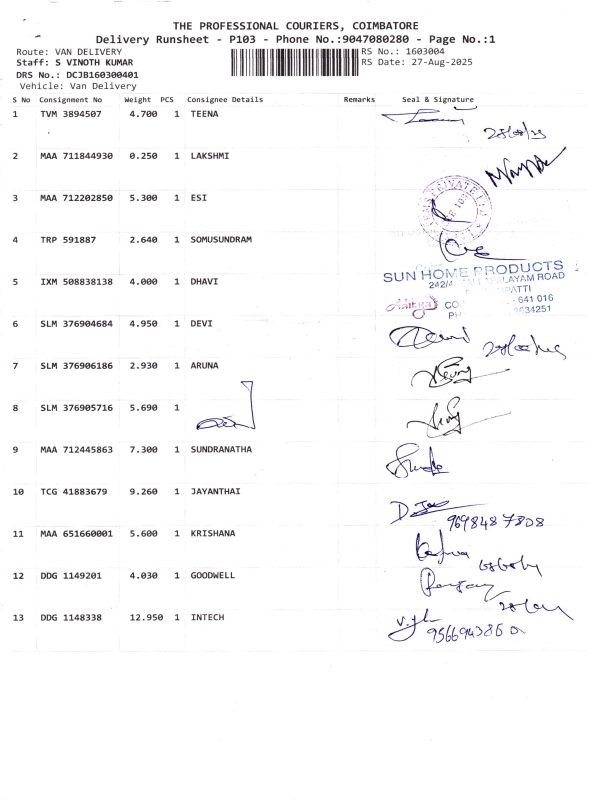 THE PROFESSIONAL COURIERS, COIMBATORE
Delivery Runsheet - P103 - Phone No.:9047080280 - Page No.:1
Route: VAN DELIVERY
RS No.: 1603004
Staff: S VINOTH KUMAR
RS Date: 27-Aug-2025
DRS No.: DCJB160300401
Vehicle: Van Delivery
S No Consignment No Weight PCS Consignee Details Remarks Seal & Signature
1 TVM 3894507 4.700 1 TEENA
2 MAA 711844930 0.250 1 LAKSHMI
3 MAA 712202850 5.300 1 ESI
4 TRP 591887 2.640 1 SOMUSUNDRAM
5 IXM 508838138 4.000 1 DHAVI
SUN HOME PRODUCTS
242/4 LAYAM ROAD
PATTI
Aditya CO - 641 016
PH 2634251
6 SLM 376904684 4.950 1 DEVI
7 SLM 376906186 2.930 1 ARUNA
8 SLM 376905716 5.690 1
9 MAA 712445863 7.300 1 SUNDRANATHA
10 TCG 41883679 9.260 1 JAYANTHAI
9698487808
11 MAA 651660001 5.600 1 KRISHANA
12 DDG 1149201 4.030 1 GOODWELL
13 DDG 1148338 12.950 1 INTECH